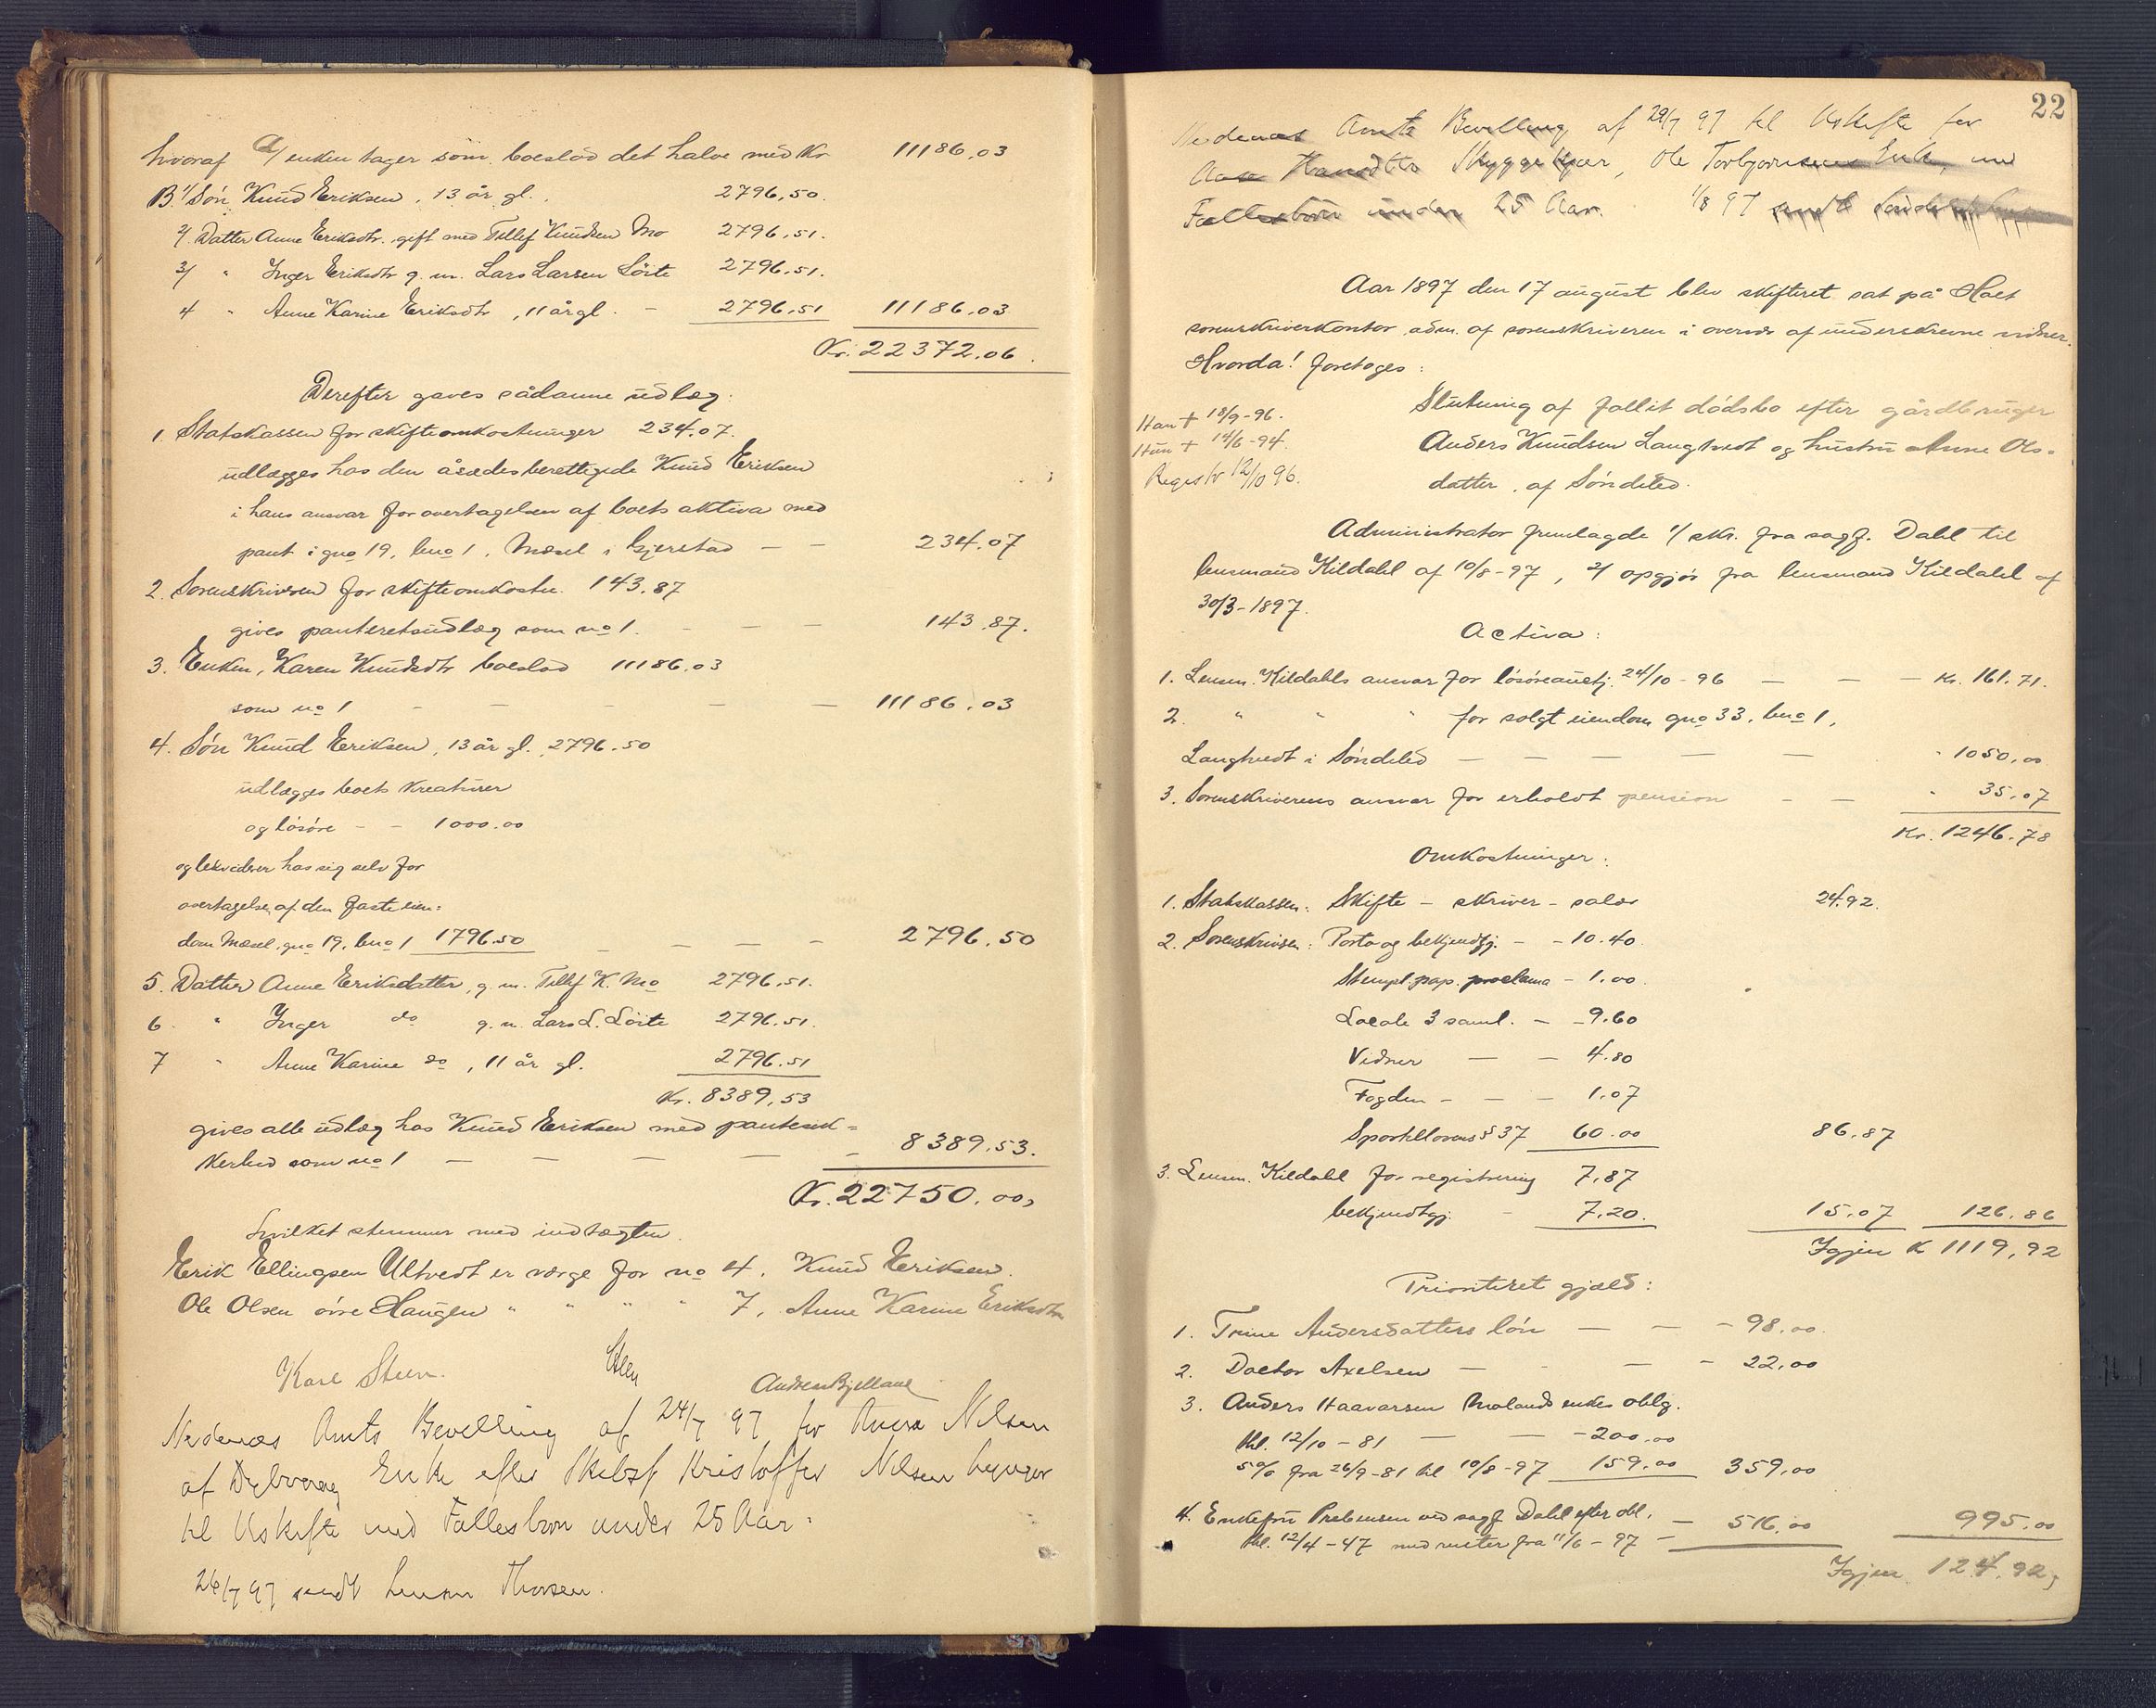 hvoraf A/ enken tager som boeslod det halve med Kr 11186,03
B. 1/ Søn Knud Eriksen, 13 år gl. 2796,50.
2/. Datter Anne Eriksdtr. gift med Tellef Knudsen Mo 2796,51.
3/ " Inger Eriksdtr g. m. Lars Larsen Löite 2796,51.
4 " Anne Karine Eriksdtr, 11 år gl. - 2796,51 11186,03
Kr. 22372,06.
Derefter gaves sådanne udlæg:
1. Statskassen for skifteomkostninger 234.07.
udlægges hos den åsædesberettigede Knud Eriksen
i hans ansvar for overtagelsen af boets aktiva med
pant i gno 19, bno 1, Mæsel i Gjerstad — — 234.07
2. Sorenskriveren for skifteomkostn. 143.87
gives panteretsudlæg som no 1. — — — 143.87.
3. Enken, Karen Knudsdtr boeslod 11186.03
som no 1 - - - - — 11186.03
4. Søn Knud Eriksen, 13 år gl. 2796.50
udlægges boets kreaturer
og løsøre - - 1000.00
og likviderer hos sig selv for
overtagelse af den faste eien=
dom Mæsel, gno 19, bno 1 1796.50 — — — - 2796.50
5. Datter Anne Eriksdatter, g. m. Tellef K. Mo 2796,51.
6. " Inger do g. m. Lars L. Löite 2796.51.
7 " Anne Karine do, 11 år gl. 2796.51
Kr. 8389,53
gives alle udlæg hos Knud Eriksen med pantesik=
kerhed som no 1 — — — — - 8389,53.
Kr. 22750,00,
hvilket stemmer med indtægten.
Erik Ellingsen Ultvedt er værge for no 4. Knud Eriksen.
Ole Olsen øvre Haugen " " " " 7, Anne Karine Eriksdtr
Karl Steen. Andreas Bjelland
Nedenæs Amts Bevilling af 24/7 97 for Anna Nilsen
af Dybvaag Enke efter Skibsf Kristoffer Nilsen
til Uskifte med Fællesbørn under 25 Aar.
26/7 97 sendt Lensm Thorsen.
22
Nedenæs Amts Bevilling af 29/7 97 til Uskifte for
Aase Skyggekjær, Ole Torbjørnsens Enke, med
Fællesbørn under 25 Aar. 1/8 97 sendt
Aar 1897 den 17 august blev skifteret sat på Holt
sorenskriverkontor adm. af sorenskriveren i overvær af underskrevne vidner.
Hvorda! foretoges:
Slutning af fallit dødsbo efter gårdbruger
Anders Knudsen Langtvedt og hustru Anne Ols-
datter, af Søndeled.
Han † 18/9-96.
Hun † 14/6-94.
Registr 12/10 96.
Administrator fremlagde 1/ skr. fra sagf. Dahl til
lensmand Kildahl af 10/8-97, 2/ opgjør fra lensmand Kildahl af
30/3-1897.
Activa:
1. Lensm. Kildahls ansvar for løsøreauktj. 24/10-96 — — — Kr. 161.71.
2. " " " for solgt eiendom gno 33, bno 1,
Langtvedt i Søndeled — — — — — " 1050,00
3. Sorenskriverens ansvar for erholdt pension - — " 35,07
Kr. 1246.78
Omkostninger:
1. Statskassen: Skifte - skriver - salær 24.92.
2. Sorenskriveren: Porto og bekjendtgj. - - 10.40.
Stempl. pap. proclama - 1.00.
Locale 3 saml. - - 9.60
Vidner — - 4.80
Fogden - - - 1.07
Sportellovens § 37 60.00 86.87
3. Lensm. Kildahl for registrering 7,87
bekjendtgj. - 7.20. 15.07 126.86
Igjen K 1119,92
Prioriteret gjæld:
1. Trine Andersdatters løn — — - 98,00.
2. Doctor Axelsen — - — - 22,00
3. Anders Haavorsen Molands enkes oblig.
thl. 12/10-81 — — - 200.00
5% fra 26/9-81 til 10/8-97 159.00 359,00
4. Enkefru Prebensen ved sagf Dahl efter obl. — 516,00 995.00
thl. 12/4-47 med renter fra 11/6-97 —
Igjen 124.92,